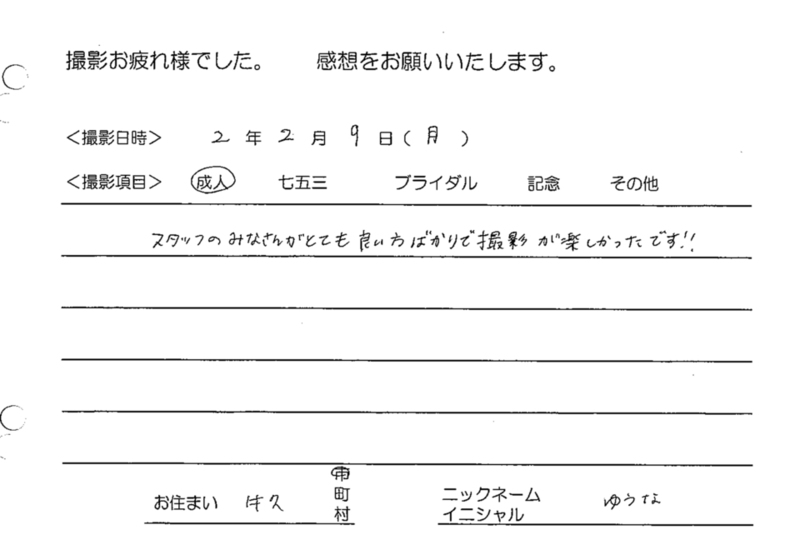 撮影お疲れ様でした。　感想をお願いいたします。
＜撮影日時＞　2 年 2 月 9 日（月）
＜撮影項目＞　成人　七五三　ブライダル　記念　その他
スタッフのみなさんがとても良い方ばかりで撮影が楽しかったです!!
お住まい　牛久　市　町　村　ニックネーム　イニシャル　ゆうな